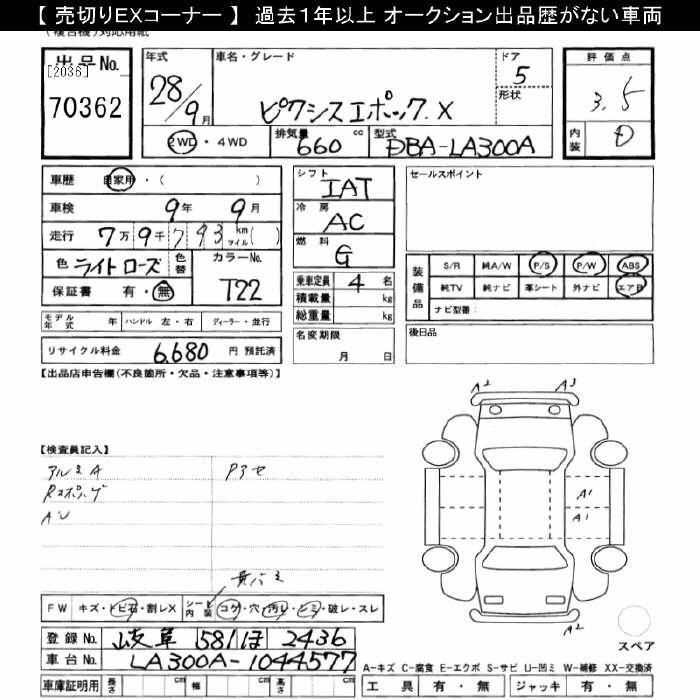 【 売切りEXコーナー 】 過去１年以上 オークション出品歴がない車両
(複合機)対応用紙
出品No.
[2036]
70362
年式
28/9月
車名・グレード
ピクシスエポック.X
ドア
5
形状
2WD・4WD
排気量 660 cc
型式 DBA-LA300A
評価点
3.5
内装 D
車歴 自家用・( )
車検 9年 9月
走行 7万9千793 km マイル( )
色 ライトローズ 色替
カラーNo. T22
保証書 有・無
シフト IAT
冷房 AC
燃料 G
乗車定員 4 名
積載量 kg
総重量 kg
名変期限
月 日
セールスポイント
装備品
S/R 純A/W P/S P/W ABS
純TV 純ナビ 革シート 外ナビ エアB
ナビ型番:
後日品
モデル年式 年 ハンドル 左・右 ディーラー・並行
リサイクル料金 6,680 円 預託済
【出品店申告欄(不良箇所・欠品・注意事項等)】
A2 A3
【検査員記入】
アルミA Pアセ
Rスポソゲ
AU
A1
A1
A2
FW キズ・トビ石・割レX シート内装 コゲ・穴・汚レ・シミ・破レ・スレ
スペア
登録No. 岐阜 581 ほ 2436
車台No. LA300A-1044577
A－キズ C－腐食 E－エクボ S－サビ U－凹ミ W－補修 XX－交換済
車庫証明用 長さ cm 幅 cm 高さ cm
工具 有・無 ジャッキ 有・無